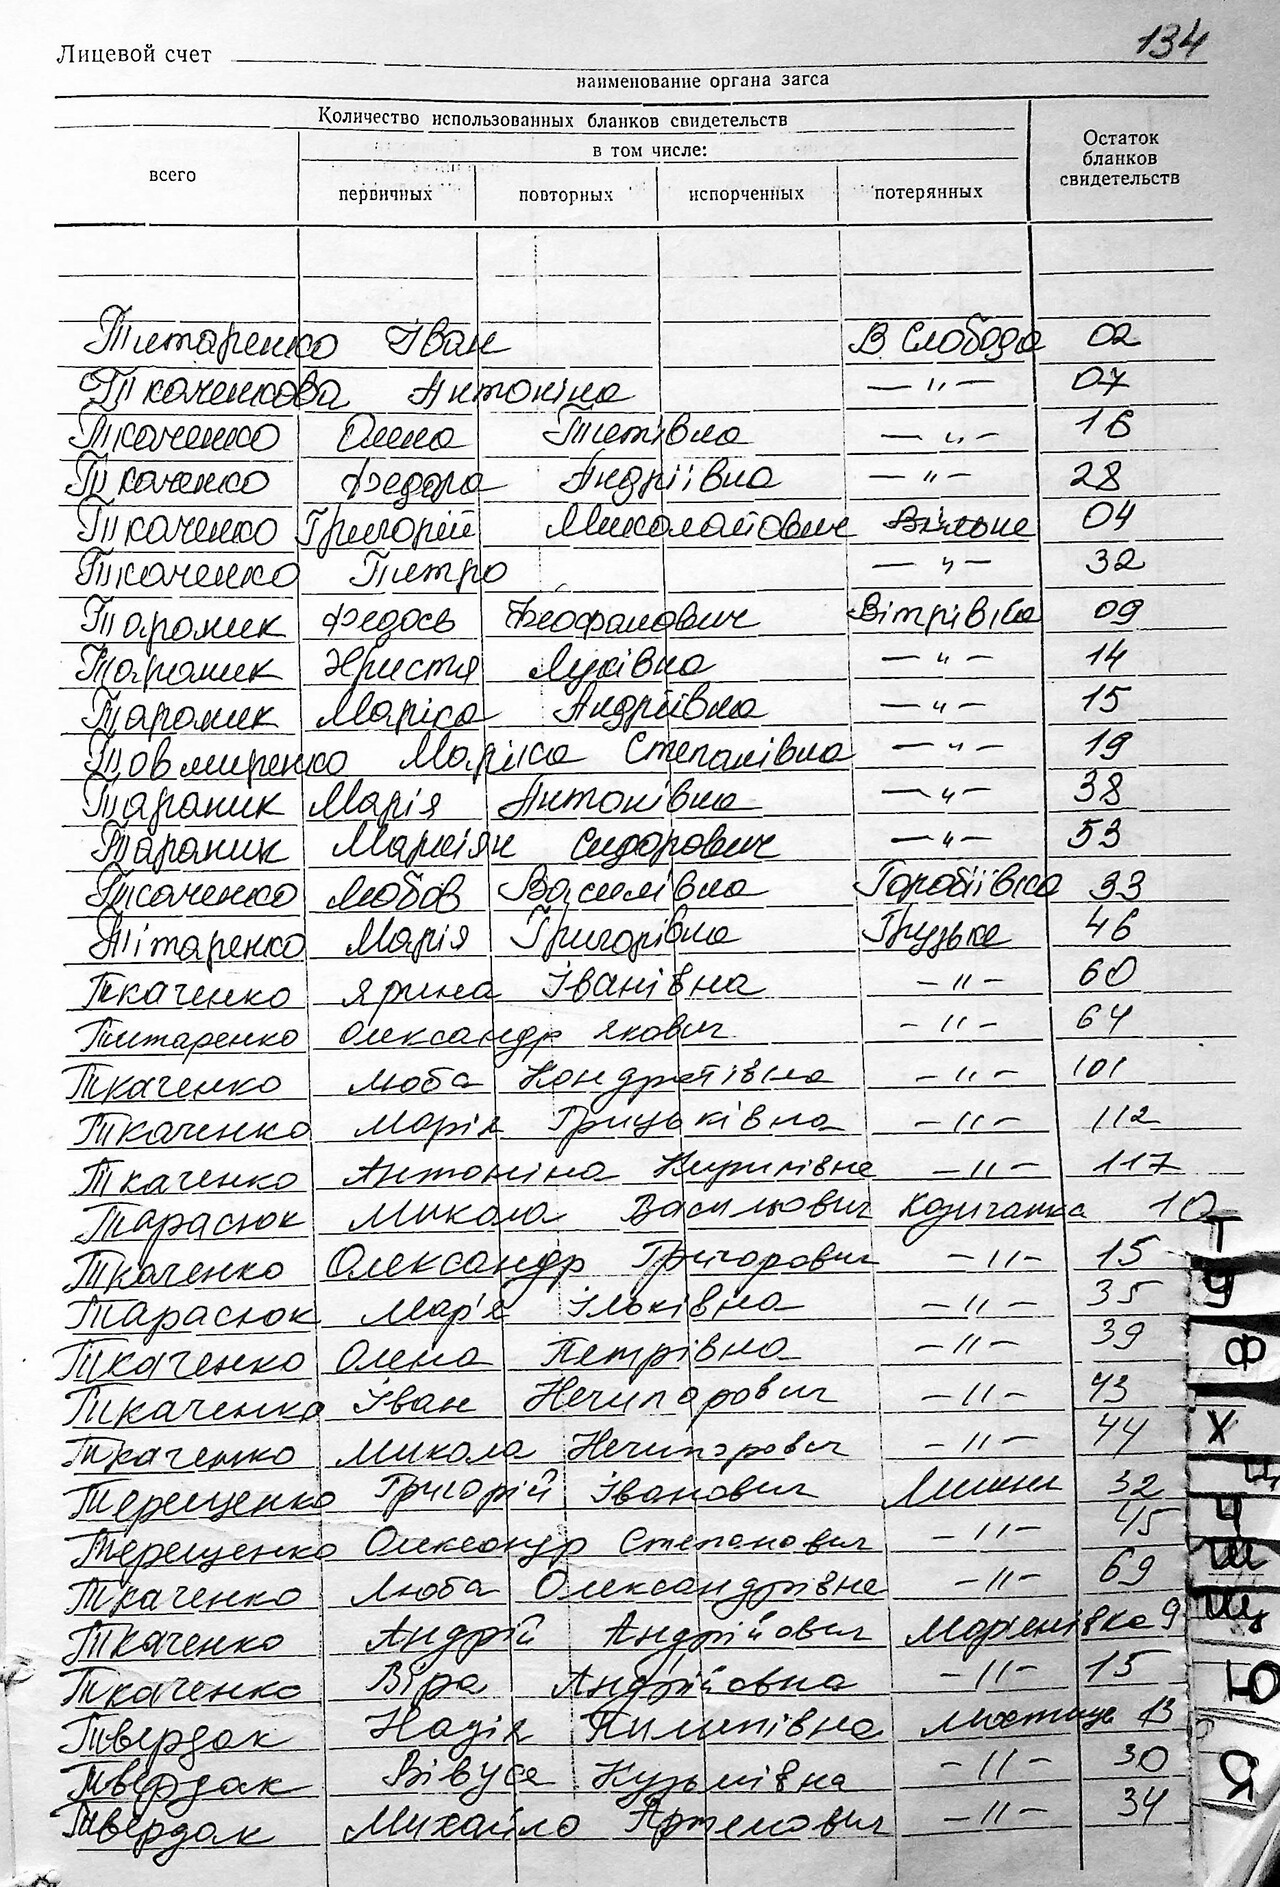 134
Лицевой счет
наименование органа загса
Количество использованных бланков свидетельств
Остаток бланков свидетельств
в том числе:
всего
первичных повторных испорченных потерянных
Титаренко Іван В Слобода 02
Ткаченкова Антоніна — " — 07
Ткаченко Олена Титівна — " — 16
Ткаченко Федора Андріївна — " — 28
Ткаченко Григорій Миколайович Вільне 04
Ткаченко Петро — " — 32
Тараник Федось Феофанович Вітрівка 09
Тараник Христя Луківна — " — 14
Тараник Маріса Андріївна — " — 15
Товмиренко Маріса Степанівна — " — 19
Тараник Марія Антонівна — " — 38
Тараник Маркіян Сидорович — " — 53
Ткаченко Любов Василівна Горобіївса 33
Тітаренко Марія Григорівна Грузьке 46
Ткаченко Ярина Іванівна — " — 60
Титаренко Олександр Якович — " — 64
Ткаченко Люба Кондратівна — " — 101
Ткаченко Марія Грицьківна — " — 112
Ткаченко Антоніна Кирилівна — " — 117
Тарасюк Микола Васильович Козичанка 10
Ткаченко Олександр Григорович — " — 15
Тарасюк Мар'я Ільківна — " — 35
Ткаченко Олена Петрівна — " — 39
Ткаченко Іван Нечипорович — " — 43
Ткаченко Микола Нечипорович — " — 44
Терещенко Григорій Іванович 32
Терещенко Олександр Степанович — " — 45
Ткаченко Люба Олександрівна — " — 69
Ткаченко Андрій Андрійович Мар'янівка 9
Ткаченко Віра Андрійовна — " — 15
Твердак Надія Пилипівна 13
Твердак Кузьмівна — " — 30
Твердак Михайло Артемович — " — 34
Т
У
Ф
Х
Ц
Ч
Ш
Щ
Ю
Я